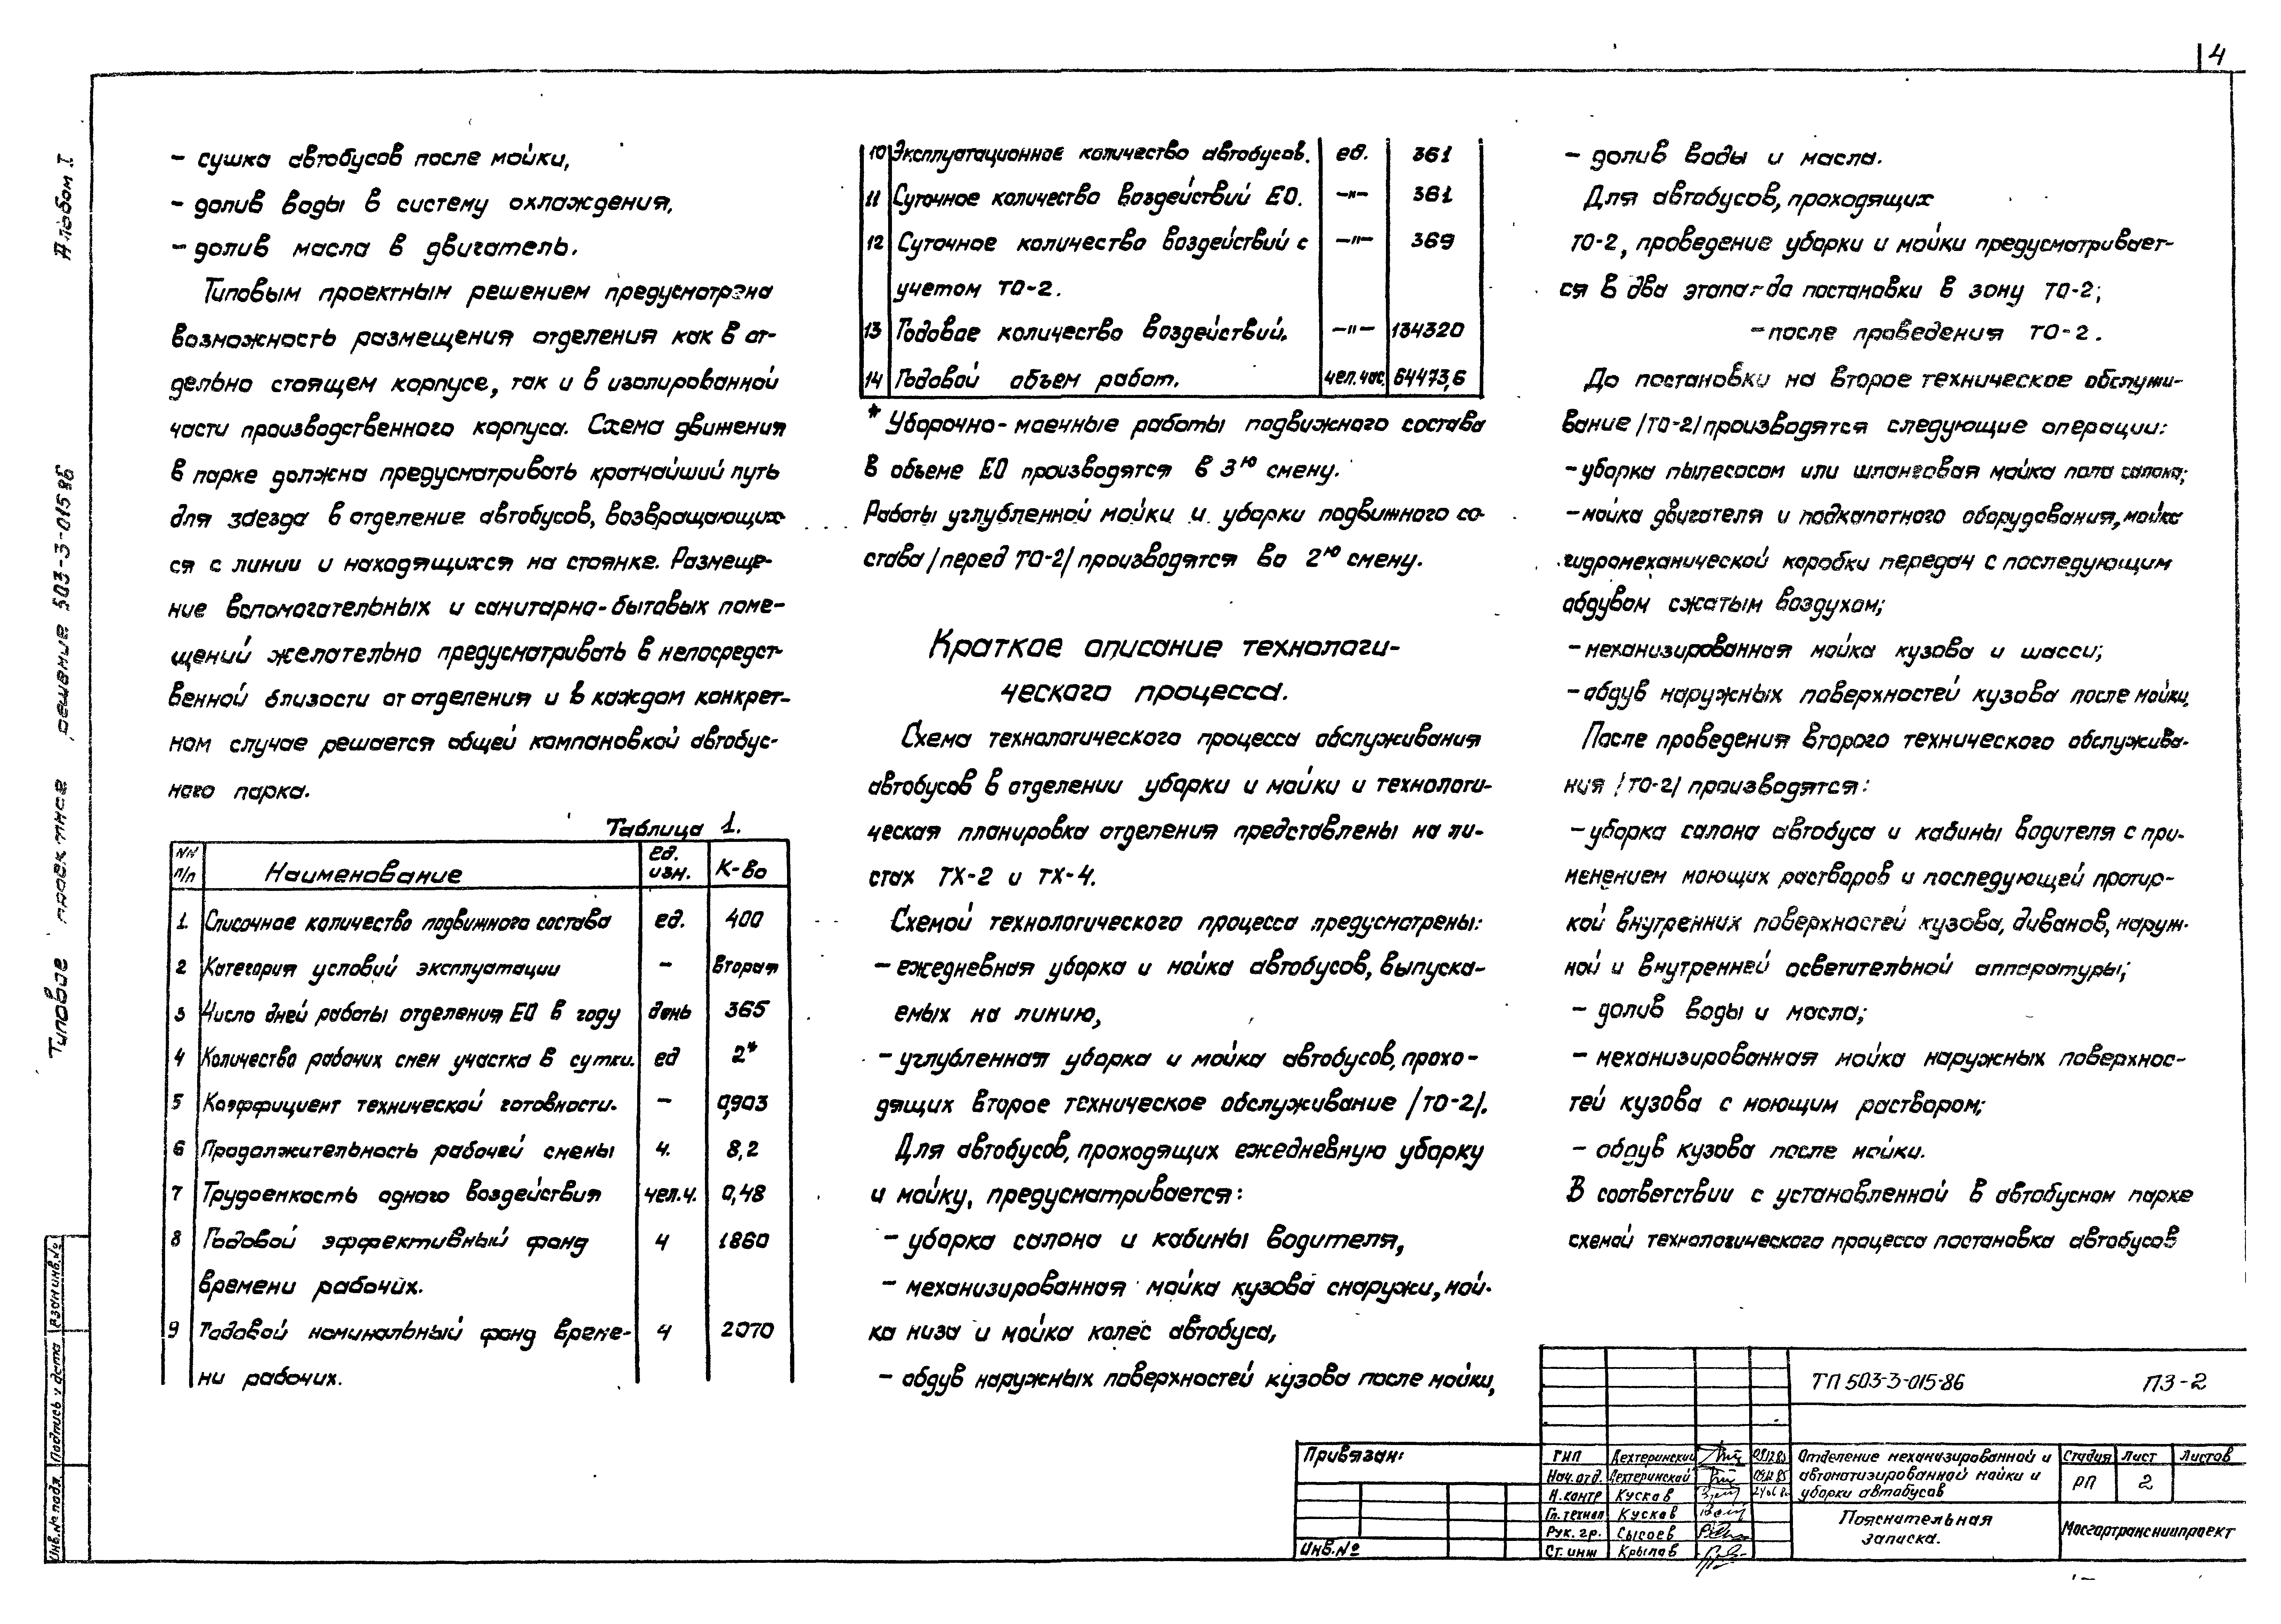 4
Альбом I
Типовое проектное решение 503-3-015.86
- сушка автобусов после мойки,
- долив воды в систему охлаждения,
- долив масла в двигатель.
Типовым проектным решением предусмотрена
возможность размещения отделения как в от-
дельно стоящем корпусе, так и в изолированной
части производственного корпуса. Схема движения
в парке должна предусматривать кратчайший путь
для заезда в отделение автобусов, возвращающих-
ся с линии и находящихся на стоянке. Размеще-
ние вспомогательных и санитарно-бытовых поме-
щений желательно предусматривать в непосредст-
венной близости от отделения и в каждом конкрет-
ном случае решается общей компановкой автобус-
ного парка.
Таблица 1.
NN п/п Наименование ед. изм. К-во
1. Списочное количество подвижного состава ед. 400
2 Категория условий эксплуатации - вторая
3 Число дней работы отделения ЕО в году день 365
4 Количество рабочих смен участка в сутки. ед 2*
5 Коэффициент технической готовности. - 0,903
6 Продолжительность рабочей смены ч. 8,2
7 Трудоемкость одного воздействия чел.ч. 0,48
8 Годовой эффективный фонд ч 1860
времени рабочих.
9 Годовой номинальный фонд време- ч 2070
ни рабочих.
10 Эксплуатационное количество автобусов. ед. 361
11 Суточное количество воздействий ЕО. -"- 361
12 Суточное количество воздействий с -"- 369
учетом ТО-2.
13 Годовое количество воздействий. -"- 134320
14 Годовой объем работ. чел.час. 64473,6
* Уборочно-моечные работы подвижного состава
в объеме ЕО производятся в 3ю смену.
Работы углубленной мойки и уборки подвижного со-
става /перед ТО-2/ производятся во 2ю смену.
Краткое описание технологи-
ческого процесса.
Схема технологического процесса обслуживания
автобусов в отделении уборки и мойки и технологи-
ческая планировка отделения представлены на ли-
стах ТХ-2 и ТХ-4.
Схемой технологического процесса предусмотрены:
- ежедневная уборка и мойка автобусов, выпуска-
емых на линию,
- углубленная уборка и мойка автобусов, прохо-
дящих второе техническое обслуживание /ТО-2/.
Для автобусов, проходящих ежедневную уборку
и мойку, предусматривается:
- уборка салона и кабины водителя,
- механизированная мойка кузова снаружи, мой-
ка низа и мойка колес автобуса,
- обдув наружных поверхностей кузова после мойки,
- долив воды и масла.
Для автобусов, проходящих
ТО-2, проведение уборки и мойки предусматривает-
ся в два этапа:- до постановки в зону ТО-2;
- после проведения ТО-2.
До постановки на второе техническое обслужи-
вание /ТО-2/ производятся следующие операции:
- уборка пылесосом или шланговая мойка пола салона;
- мойка двигателя и подкапотного оборудования, мойка
гидромеханической коробки передач с последующим
обдувом сжатым воздухом;
- механизированная мойка кузова и шасси;
- обдув наружных поверхностей кузова после мойки.
После проведения второго технического обслужива-
ния /ТО-2/ производятся:
- уборка салона автобуса и кабины водителя с при-
менением моющих растворов и последующей протир-
кой внутренних поверхностей кузова, диванов, наруж-
ной и внутренней осветительной аппаратуры;
- долив воды и масла;
- механизированная мойка наружных поверхнос-
тей кузова с моющим раствором;
- обдув кузова после мойки.
В соответствии с установленной в автобусном парке
схемой технологического процесса постановка автобусов
ТП 503-3-015-86 ПЗ-2
Привязан:
Инв.№
ГИП Дехтеринский
Нач. отд. Дехтеринский
Н.контр Кусков
Гл. технол Кусков
Рук. гр. Сысоев
Ст. инж Крылов
Отделение механизированной и
автоматизированной мойки и
уборки автобусов
Стадия Лист Листов
РП 2
Пояснительная
записка.
Мосгортрансниипроект
Инв.№ подл. Подпись и дата Взам инв.№